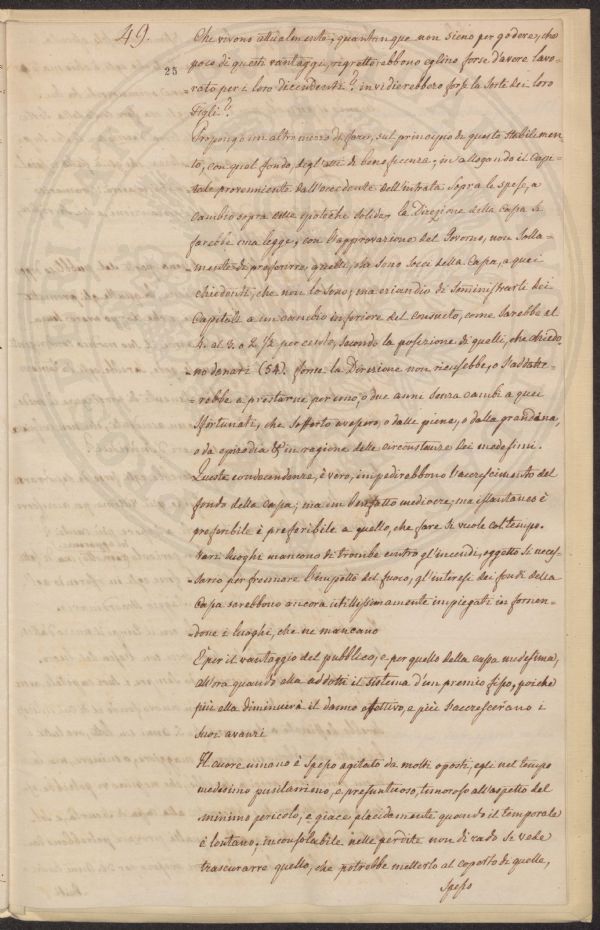 49.
25
Che vivono attualmente, quantunque non sieno per godere, che
poco di questi vantaggi, rigretterebbono eglino forse d'avere lavo-
rato per i loro discendenti? invidierebbero forse la Sorte dei loro
Figli?
Propongo un altro mezzo di fare, sul principio di questo Stabilimen-
to, con qual fondo, degl'atti di beneficenza, in allogando il Capi-
tale proveniente dall'eccedente dell'intrata Sopra le spese, a
Cambio sopra ipoteche Solide, la Direzione della Cassa Si
farebbe una legge, con l'approvazione del Governo, non Solla-
mente di preferire quelli, che Sono Socci della Cassa, a quei
chiedenti, che non lo Sono; ma eziandio di Somministrarli dei
Capitali a un cambio inferiore del consueto, come Sarebbe al
4. al 3. o 2 1/2 per cento, Secondo la posizione di quelli, che chiedo-
-no denari (54). forse la Direzione non ricusebbe, o S'addatte-
-rebbe a prestarne per uno, o due anni Senza cambi a quei
Sfortunati, che Sofferto avessero, o dalle piene, o dalla grandina,
o da epizodia & in ragione delle circonstanze dei medesimi.
Queste condiscendenze, è vero, impedirebbono l'accrescimento del
fondo della Cassa; ma un benfatto mediocre, ma istantaneo è
preferibile è preferibile a quello, che fare Si vuole col tempo.
Vari luoghi mancono di trombe contro gl'incendi, oggetto Si neces-
-sario per frennare l'impetto del fuoco, gl'interesi dei fondi della
Cassa sarebbono ancora utillissimamente impiegati in fornen-
-done i luoghi, che ne mancano
E per il vantaggio del pubblico, e per quello della cassa medesima,
all'ora quando ella addotti il sistema d'un premio fisso, poiche
più ella diminuirà il danno effettivo, e più S'accrescerano i
Suoi avanzi
Il cuore umano è Spesso agitato da molti oposti, egli nel tempo
medesimo pusilanimo, e presuntuoso, timoroso all'aspetto del
minimo pericolo, e giace placidamente quando il temporale
è lontano, inconsolabile nelle perdite non di rado Si vede
trascurarre quello, che potrebbe metterlo al coperto di quelle,
Spesso